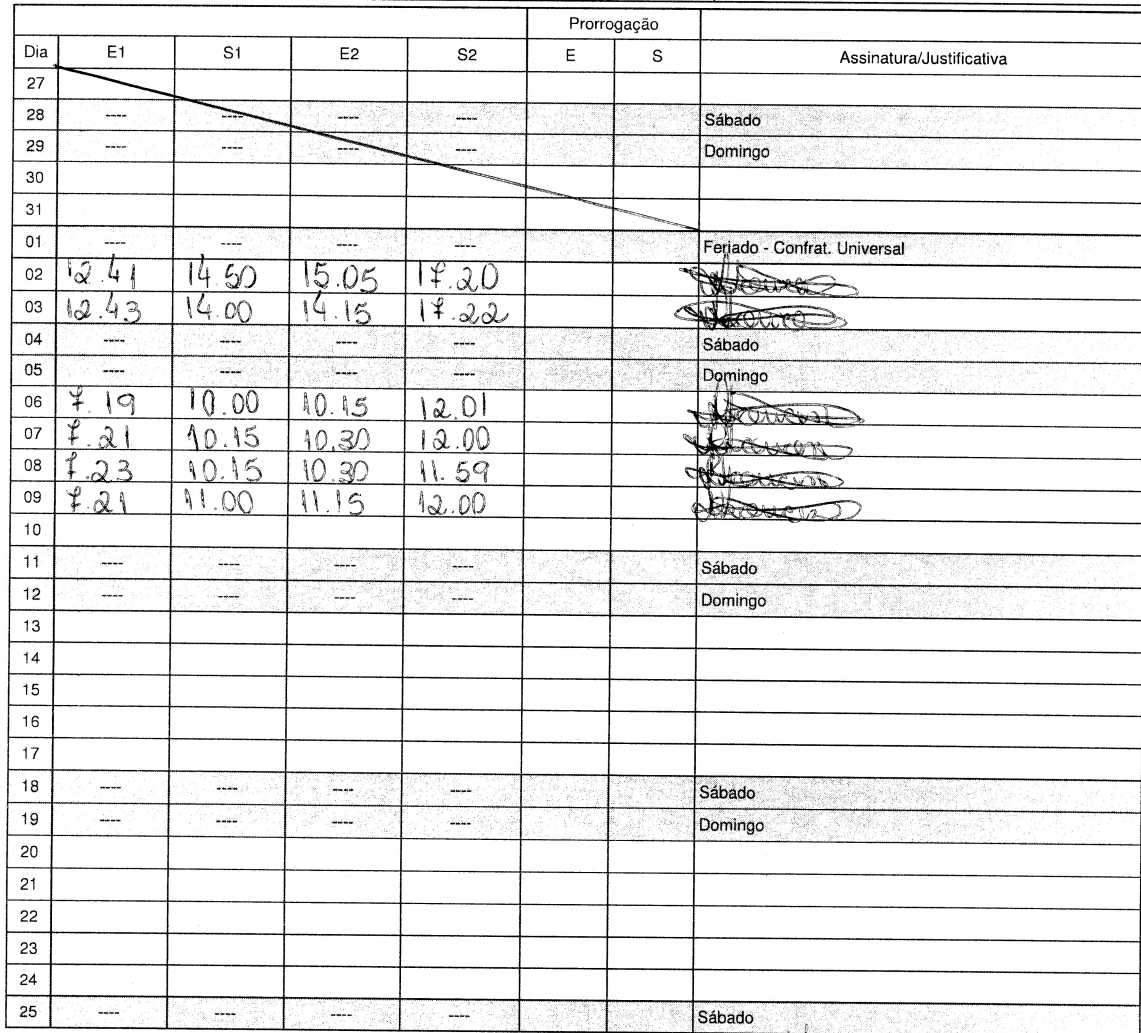 Prorrogação
Dia E1 S1 E2 S2 E S Assinatura/Justificativa
27
28 ---- ---- ---- ---- Sábado
29 ---- ---- ---- ---- Domingo
30
31
01 ---- ---- ---- ---- Feriado - Confrat. Universal
02 12.41 14.50 15.05 17.20
03 12.43 14.00 14.15 17.22
04 ---- ---- ---- ---- Sábado
05 ---- ---- ---- ---- Domingo
06 7.19 10.00 10.15 12.01
07 7.21 10.15 10.30 12.00
08 7.23 10.15 10.30 11.59
09 7.21 11.00 11.15 12.00
10
11 ---- ---- ---- ---- Sábado
12 ---- ---- ---- ---- Domingo
13
14
15
16
17
18 ---- ---- ---- ---- Sábado
19 ---- ---- ---- ---- Domingo
20
21
22
23
24
25 ---- ---- ---- ---- Sábado